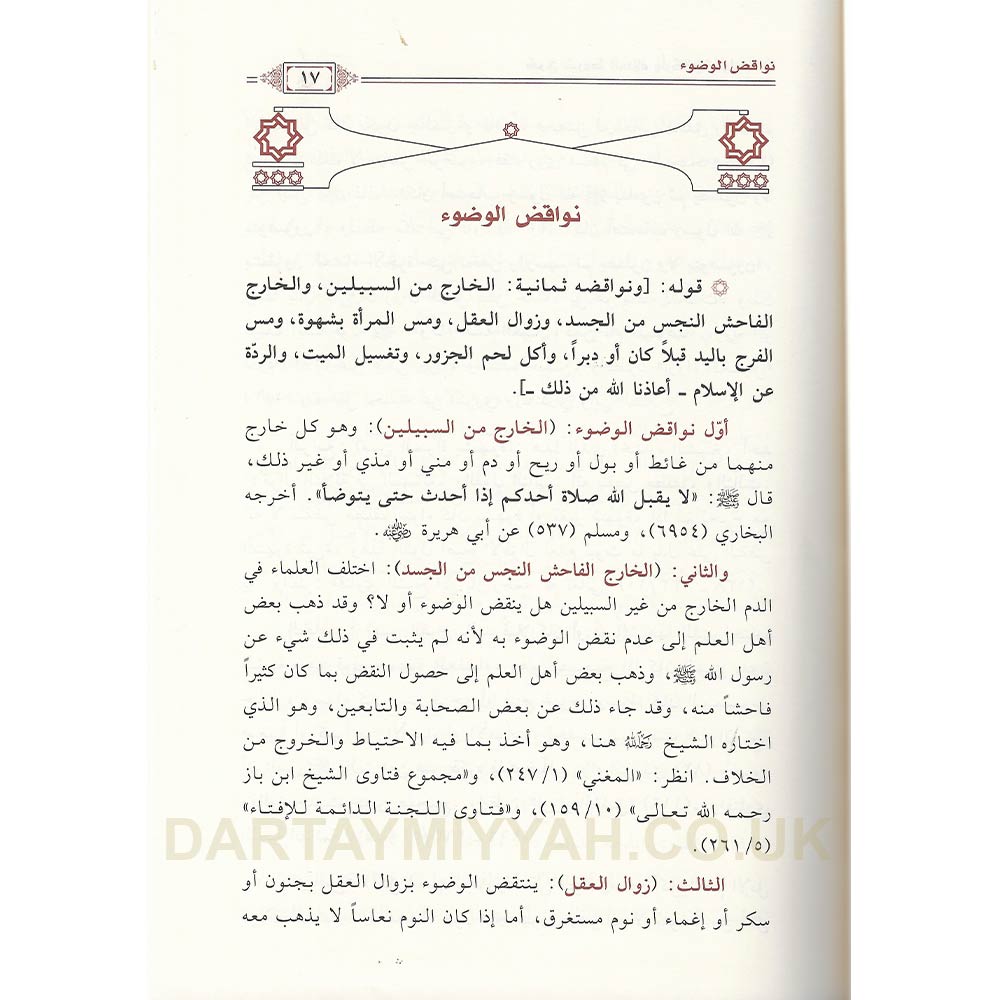 نواقض الوضوء
١٧
نواقض الوضوء
قوله: [ونواقضه ثمانية: الخارج من السبيلين، والخارج
الفاحش النجس من الجسد، وزوال العقل، ومس المرأة بشهوة، ومس
الفرج باليد قبلاً كان أو دبراً، وأكل لحم الجزور، وتغسيل الميت، والردّة
عن الإسلام ـ أعاذنا الله من ذلك ـ].
أوّل نواقض الوضوء: (الخارج من السبيلين): وهو كل خارج
منهما من غائط أو بول أو ريح أو دم أو مني أو مذي أو غير ذلك،
قال ﷺ: «لا يقبل الله صلاة أحدكم إذا أحدث حتى يتوضأ». أخرجه
البخاري (٦٩٥٤)، ومسلم (٥٣٧) عن أبي هريرة رضي الله عنه.
والثاني: (الخارج الفاحش النجس من الجسد): اختلف العلماء في
الدم الخارج من غير السبيلين هل ينقض الوضوء أو لا؟ وقد ذهب بعض
أهل العلم إلى عدم نقض الوضوء به لأنه لم يثبت في ذلك شيء عن
رسول الله ﷺ، وذهب بعض أهل العلم إلى حصول النقض بما كان كثيراً
فاحشاً منه، وقد جاء ذلك عن بعض الصحابة والتابعين، وهو الذي
اختاره الشيخ رحمه الله هنا، وهو أخذ بما فيه الاحتياط والخروج من
الخلاف. انظر: «المغني» (٢٤٧/١)، و«مجموع فتاوى الشيخ ابن باز
رحمه الله تعالى» (١٥٩/١٠)، و«فتاوى اللجنة الدائمة للإفتاء»
(٢٦١/٥).
DARTAYMIYYAH.CO.UK
الثالث: (زوال العقل): ينتقض الوضوء بزوال العقل بجنون أو
سكر أو إغماء أو نوم مستغرق، أما إذا كان النوم نعاساً لا يذهب معه